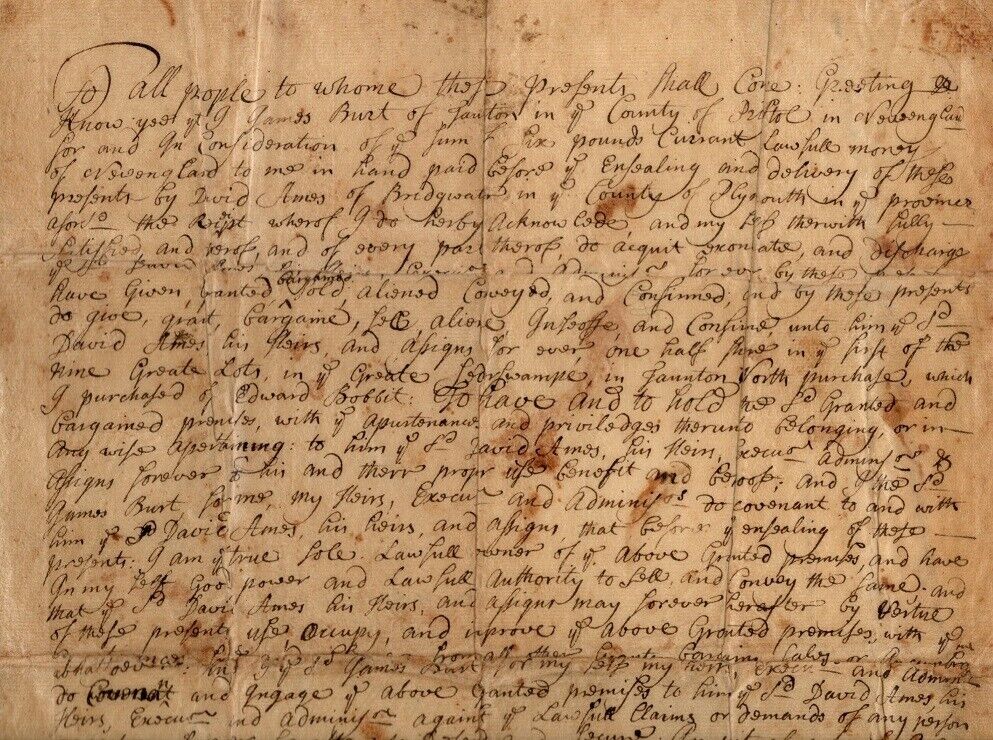 To all people to whome these Presents Shall Come: Greeting
Know yee yt I James Burt of Taunton in ye County of Bristol in Newengland
for and In Consideration of ye sum of Six pounds Currant Lawfull money
of Newengland to me in hand paid before ye Ensealing and delivery of these
presents by David Ames of Bridgwater in ye County of Plymouth in ye province
aforsd the Recipt wherof I do herby Acknowledg and my self therwith fully
Satisfied, and therof, and of every part therof, do acquit exonerate, and discharge
ye sd David Ames his for ever by these
have Given, Granted bargained Sold, aliened Coveyed, and Confirmed, and by these presents
do give, grant, bargaine, sell, aliene, Infeoffe and Confirme unto him ye Sd
David Ames his Heirs, and Asigns for ever one half share in ye first of the
nine Greate Lots, in ye Greate Cedrswampe in Taunton North purchase, which
I purchased of Edward Bobbit: To have and to hold ye Sd Granted and
bargained premises, with ye Apurtenances and priviledges therunto belonging, or in
Any wise Apertaining: to him ye Sd David Ames, his Heirs, Execurs Adminisors &
Asigns forever to his and their propr use benefit and behoof: and I the Sd
James Burt, for me, my Heirs, Execurs and Adminisors do covenant to and with
him ye Sd David Ames, his heirs, and Asigns, that before ye ensealing of these
presents: I am ye true sole Lawfull owner of ye Above Granted premises, and have
In my self Good power and Lawfull Authority to Sell, and Convey the Same and
that ye Sd David Ames his Heirs, and Asigns may forever herafter by vertue
of these presents use, Occupy, and improve ye Above Granted premises, with ye
whattoever: and I ye Sd James Burt for my self my heirs execrs and Adminrs
do Covenant and Ingage ye above Granted premises to him ye Sd David Ames, his
Heirs, Execurs and Adminisors against ye Lawfull Claims or demands of any person